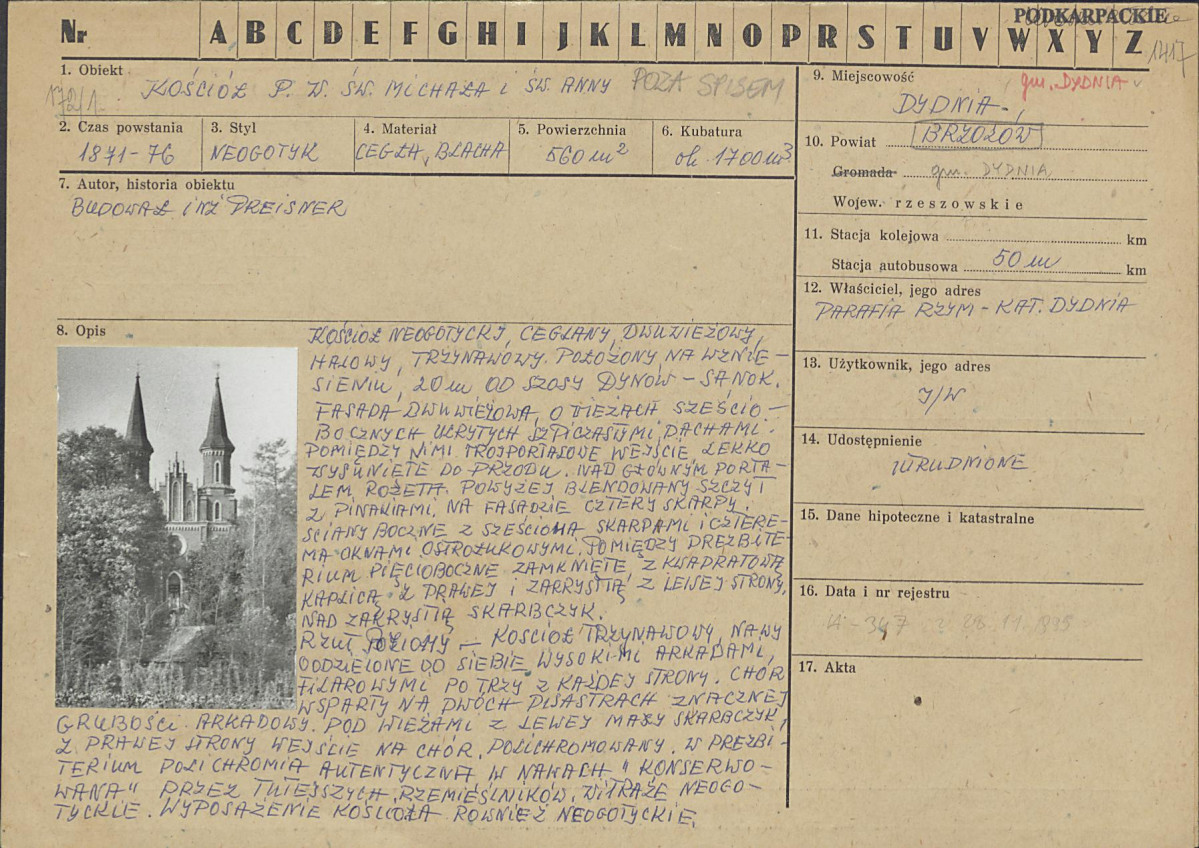 PODKARPACKIE
Nr A B C D E F G H I J K L M N O P R S T U V W X Y Z
1417
1. Obiekt KOŚCIÓŁ P. W. ŚW. MICHAŁA I ŚW. ANNY POZA SPISEM
172/1
2. Czas powstania 1871-76
3. Styl NEOGOTYK
4. Materiał CEGŁA, BLACHA
5. Powierzchnia 560 m²
6. Kubatura ok. 1700 m³
7. Autor, historia obiektu
BUDOWAŁ INŻ PREISNER
8. Opis
KOŚCIÓŁ NEOGOTYCKI, CEGLANY, DWUWIEŻOWY,
HALOWY, TRZYNAWOWY. POŁOŻONY NA WZNIE-
SIENIU, 20 m OD SZOSY DYNÓW - SANOK.
FASADA DWUWIEŻOWA, O WIEŻACH SZEŚCIO-
BOCZNYCH UKRYTYCH SZPICZASTYMI DACHAMI.
POMIĘDZY NIMI TRÓJPORTALOWE WEJŚCIE LEKKO
WYSUNIĘTE DO PRZODU. NAD GŁÓWNYM PORTA-
LEM ROZETA. POWYŻEJ BLENDOWANY SZCZYT
Z PINAKLAMI. NA FASADZIE CZTERY SKARPY.
ŚCIANY BOCZNE Z SZEŚCIOMA SKARPAMI I CZTERE-
MA OKNAMI OSTROŁUKOWYMI. POMIĘDZY PREZBITE-
RIUM PIĘCIOBOCZNE ZAMKNIĘTE, Z KWADRATOWĄ
KAPLICĄ Z PRAWEJ I ZAKRYSTIĄ Z LEWEJ STRONY,
NAD ZAKRYSTIĄ SKARBCZYK.
RZUT POZIOMY - KOŚCIÓŁ TRZYNAWOWY, NAWY
ODDZIELONE DO SIEBIE WYSOKIMI ARKADAMI,
FILAROWYMI PO TRZY Z KAŻDEJ STRONY. CHÓR
WSPARTY NA DWÓCH PILASTRACH ZNACZNEJ
GRUBOŚCI ARKADOWY. POD WIEŻAMI Z LEWEJ MAŁY SKARBCZYK,
Z PRAWEJ STRONY WEJŚCIE NA CHÓR. POLICHROMOWANY. W PREZBI-
TERIUM POLICHROMIA AUTENTYCZNA W NAWACH "KONSERWO-
WANA" PRZEZ TUTEJSZYCH RZEMIEŚLNIKÓW. WITRAŻE NEOGO-
TYCKIE. WYPOSAŻENIE KOŚCIOŁA RÓWNIEŻ NEOGOTYCKIE.
9. Miejscowość gm. DYDNIA
DYDNIA
10. Powiat BRZOZÓW
Gromada gm. DYDNIA
Wojew. rzeszowskie
11. Stacja kolejowa km
Stacja autobusowa 50 m km
12. Właściciel, jego adres
PARAFIA RZYM-KAT. DYDNIA
13. Użytkownik, jego adres
J/W
14. Udostępnienie
UTRUDNIONE
15. Dane hipoteczne i katastralne
16. Data i nr rejestru
A-347 z 28.11.1995
17. Akta